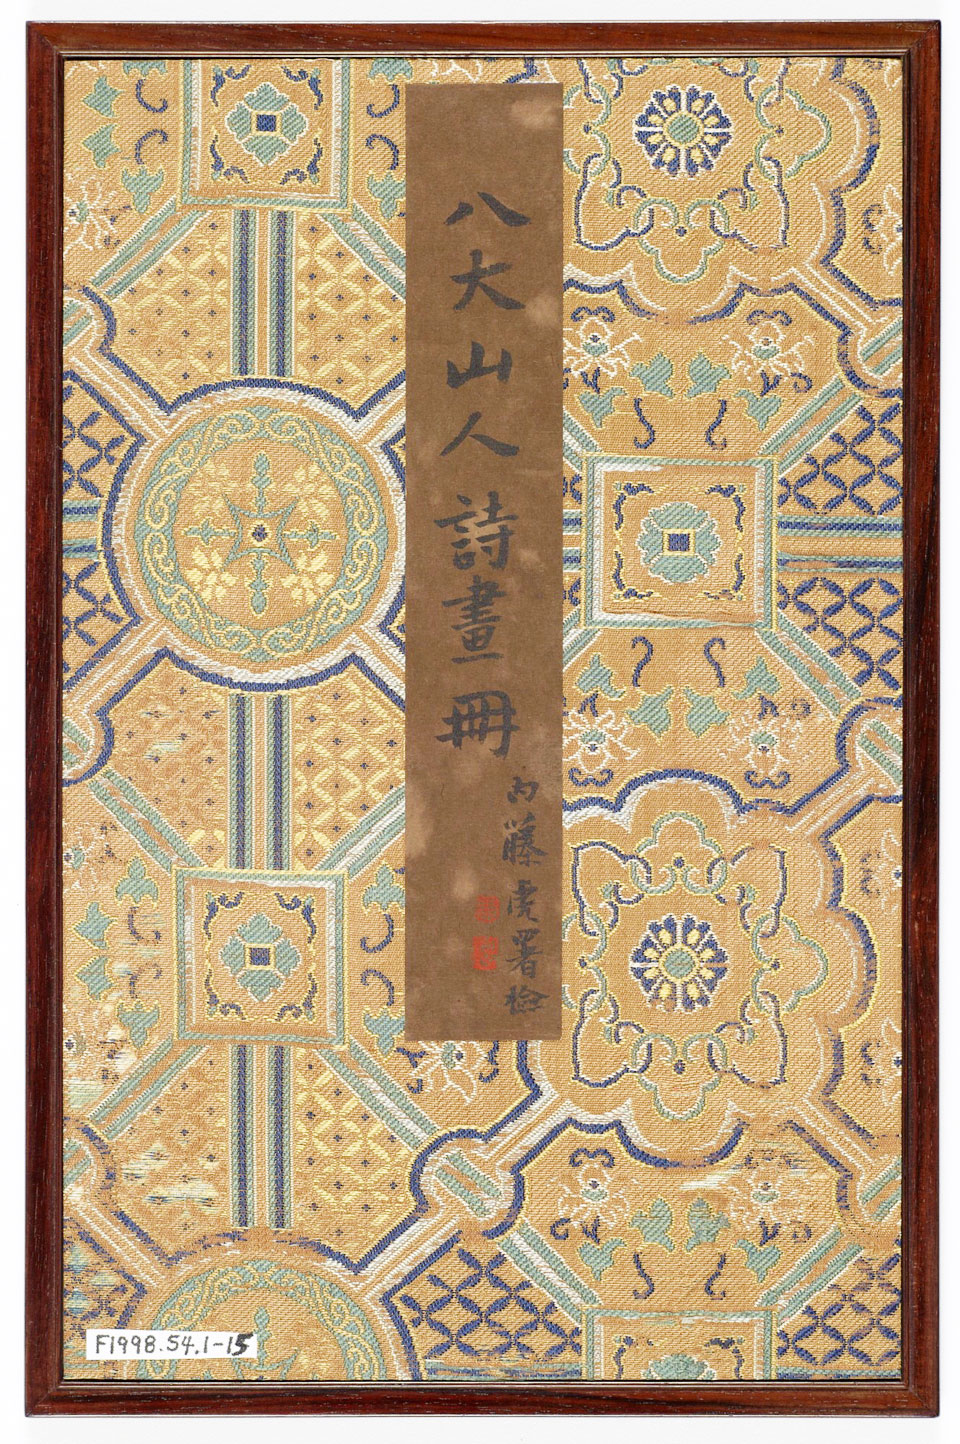 八大山人詩畫冊
内藤虎署檢
F1998.54.1-15